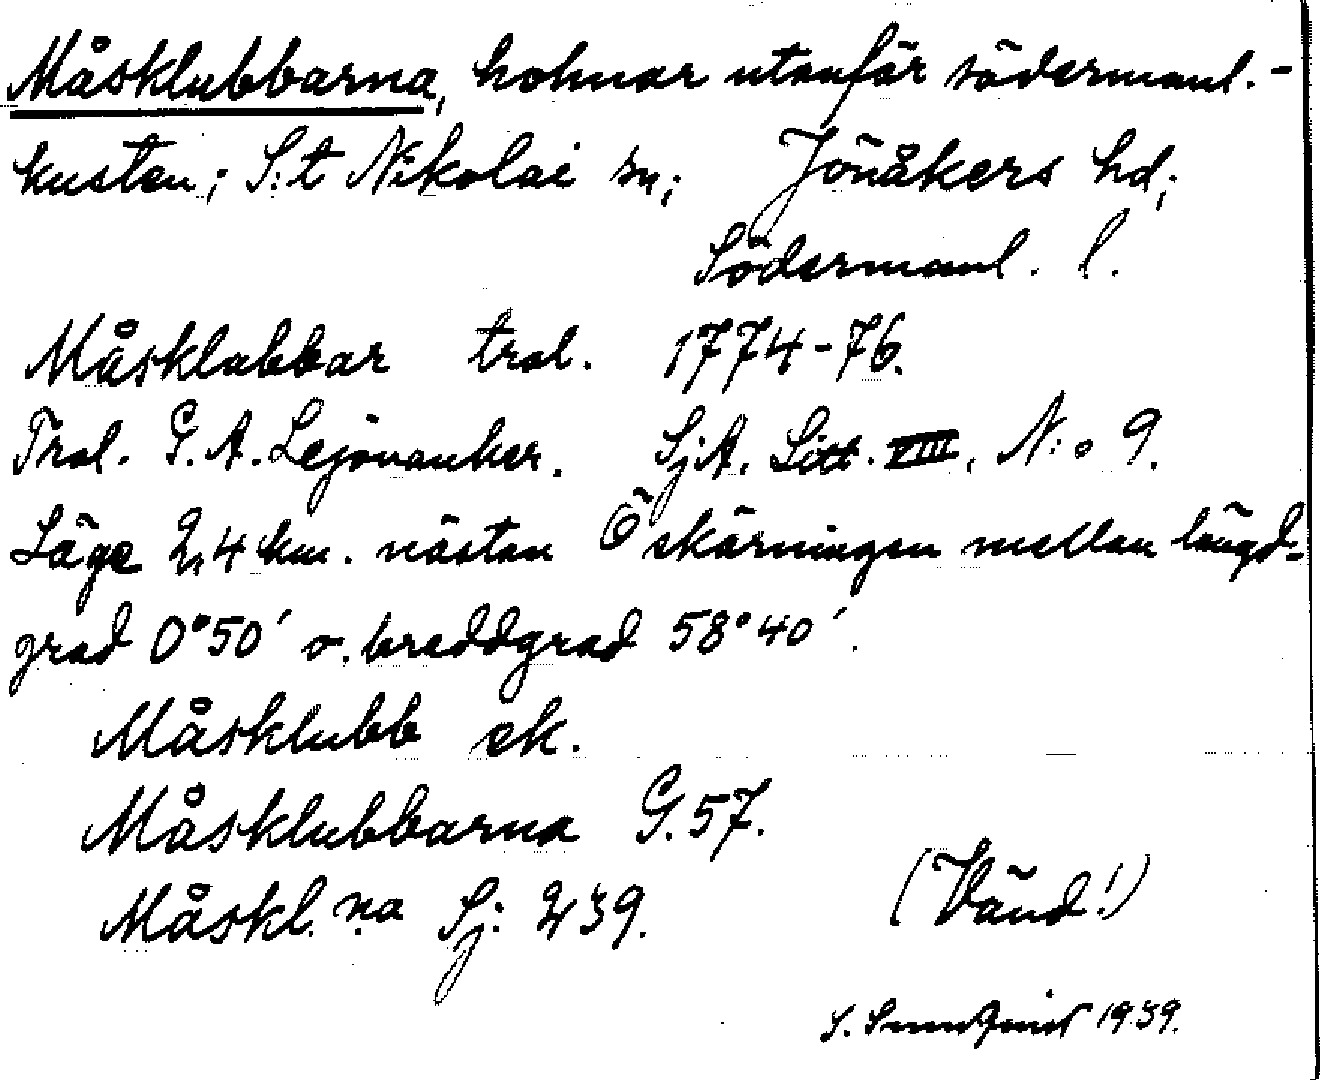 Måsklubbarna, holmar utanför södermanl.-
kusten; S:t Nikolai sn; Jönåkers hd;
Södermanl. l.
Måsklabbar trol. 1774-76.
Trol. G. A. Lejonanker. SjA. Litt. VIII, N:o 9.
Läge 2,4 km. nästan Ö skärningen mellan längd-
grad 0°50' o. breddgrad 58°40'.
Måsklubb ek.
Måsklubbarna G. 57.
Måskl.na Sj: 239.
(Vänd!)
S. 1939.